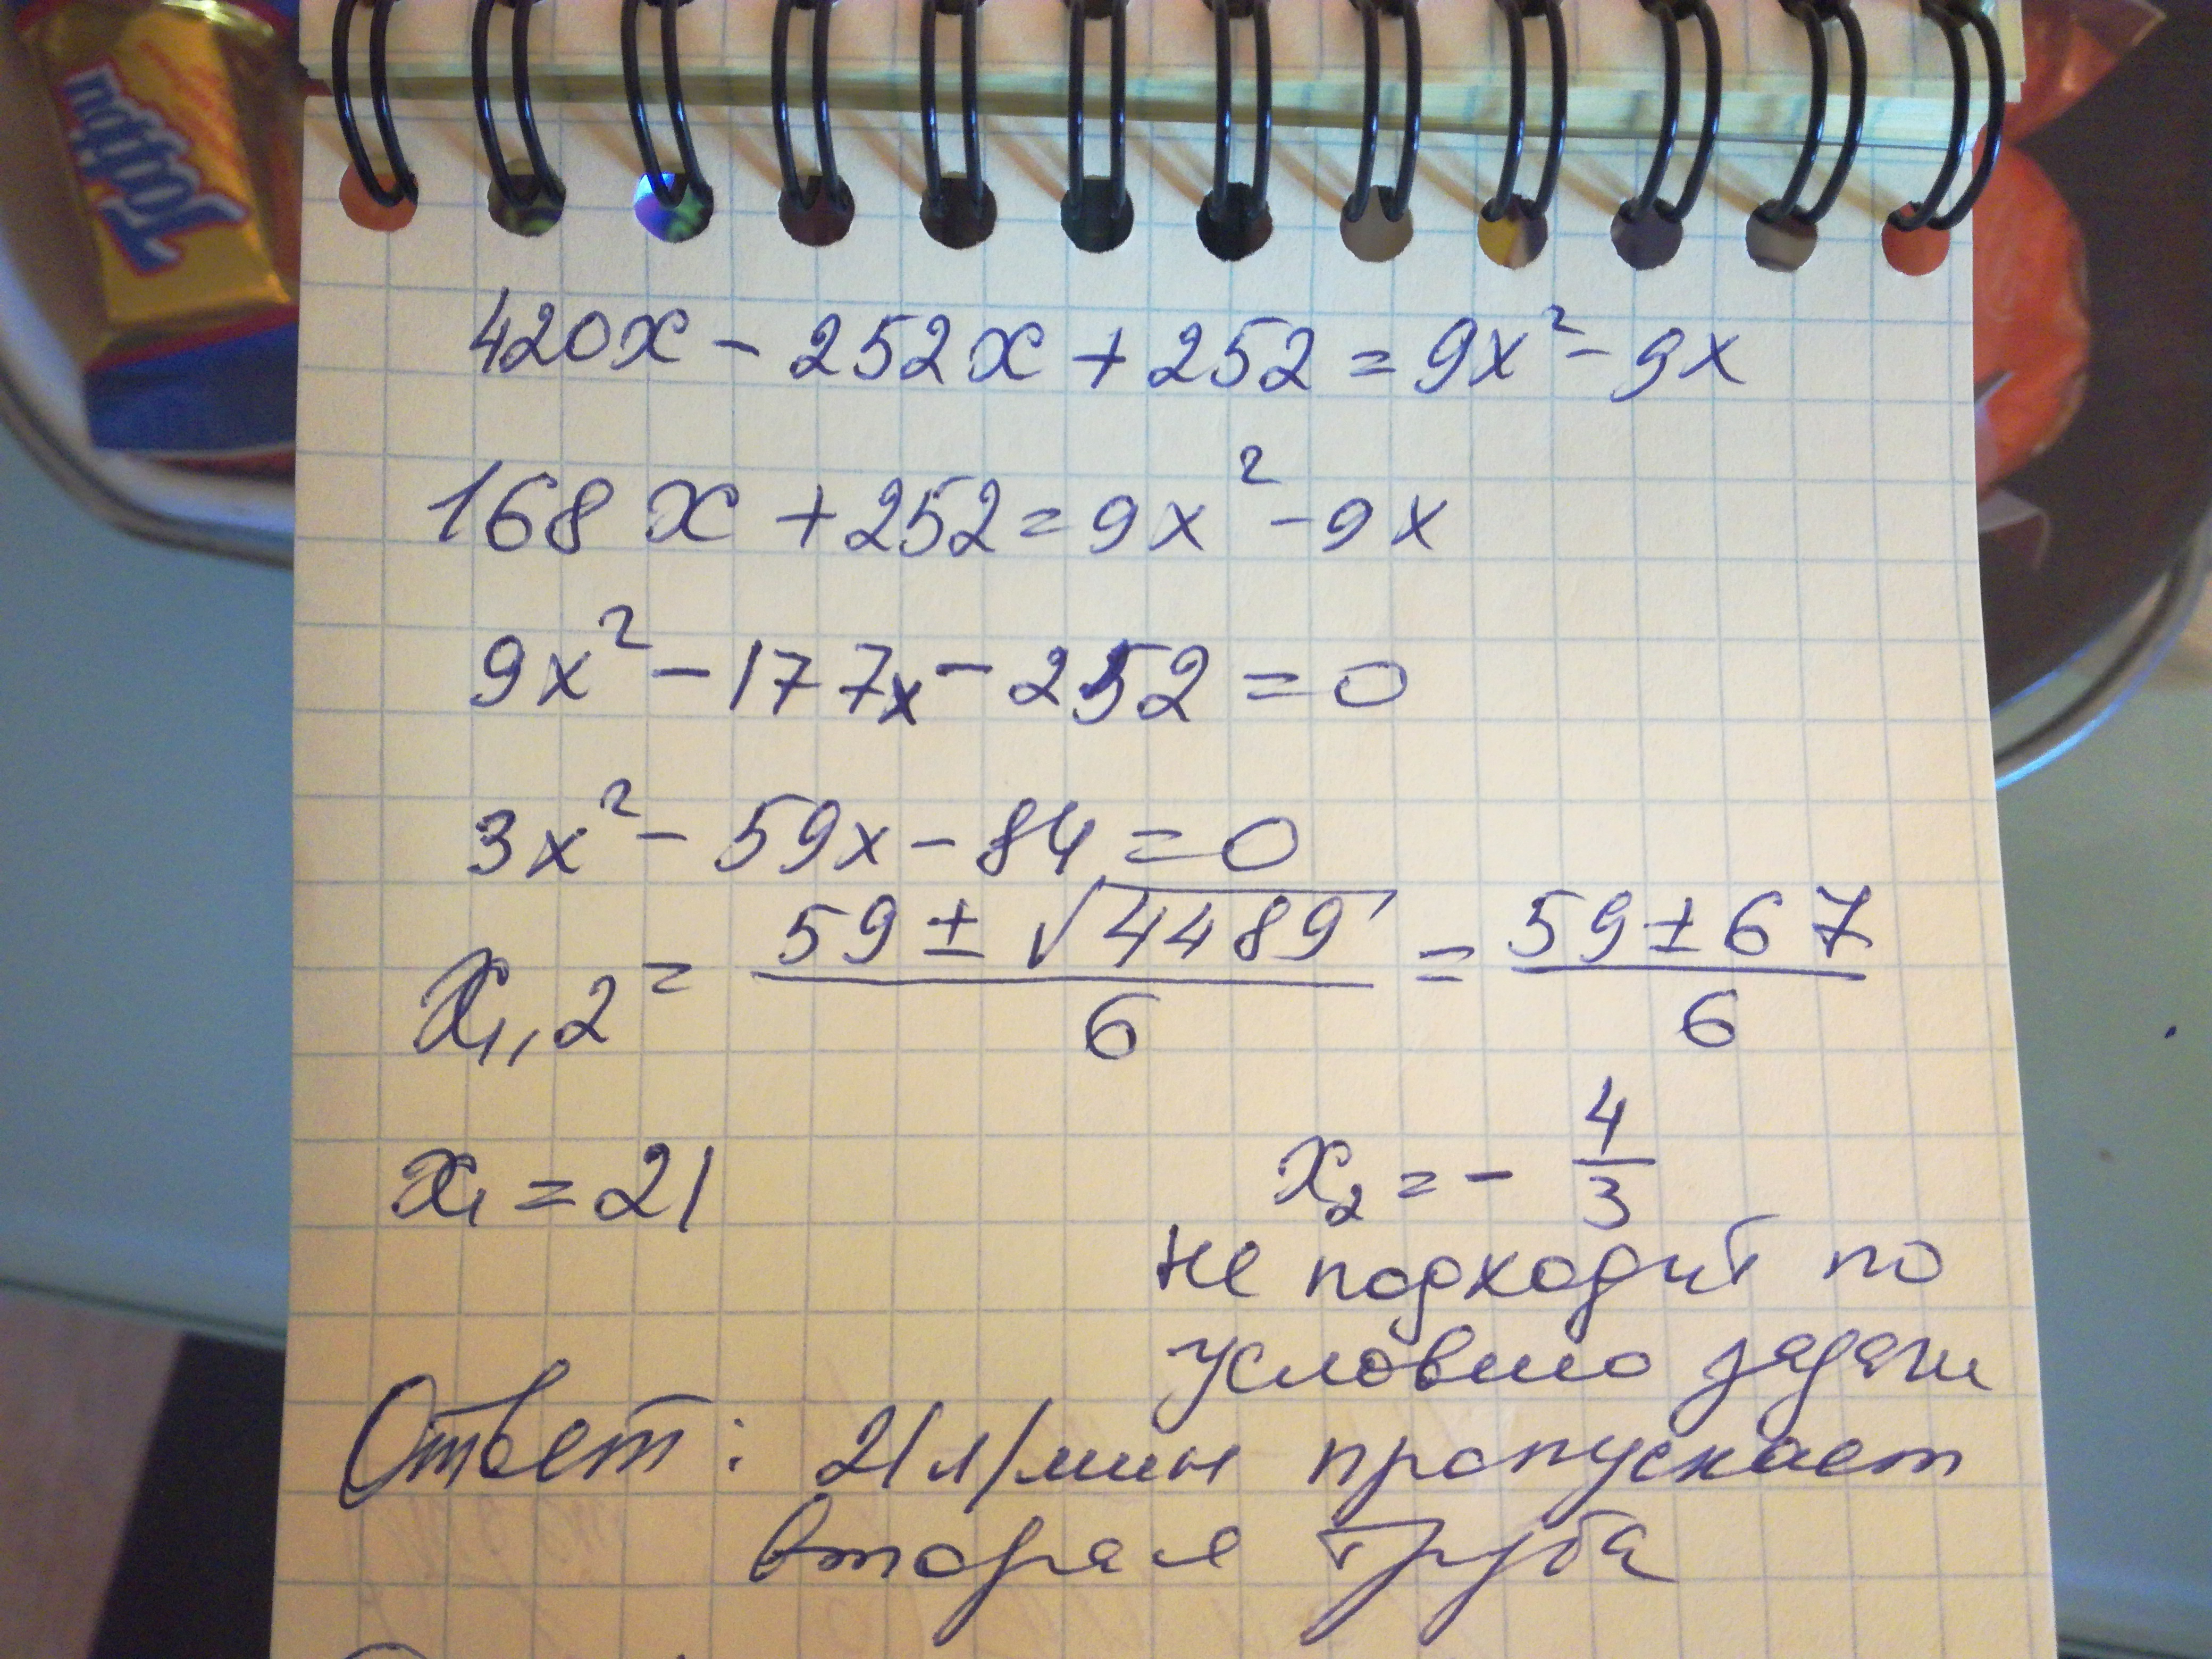 Toffin
420x - 252x + 252 = 9x² - 9x
168x + 252 = 9x² - 9x
9x² - 177x - 252 = 0
3x² - 59x - 84 = 0
x₁,₂ = (59 ± √4489)/6 = (59 ± 67)/6
x₁ = 21
x₂ = - 4/3
не подходит по
условию задачи
Ответ: 21 л/мин пропускает
вторая труба